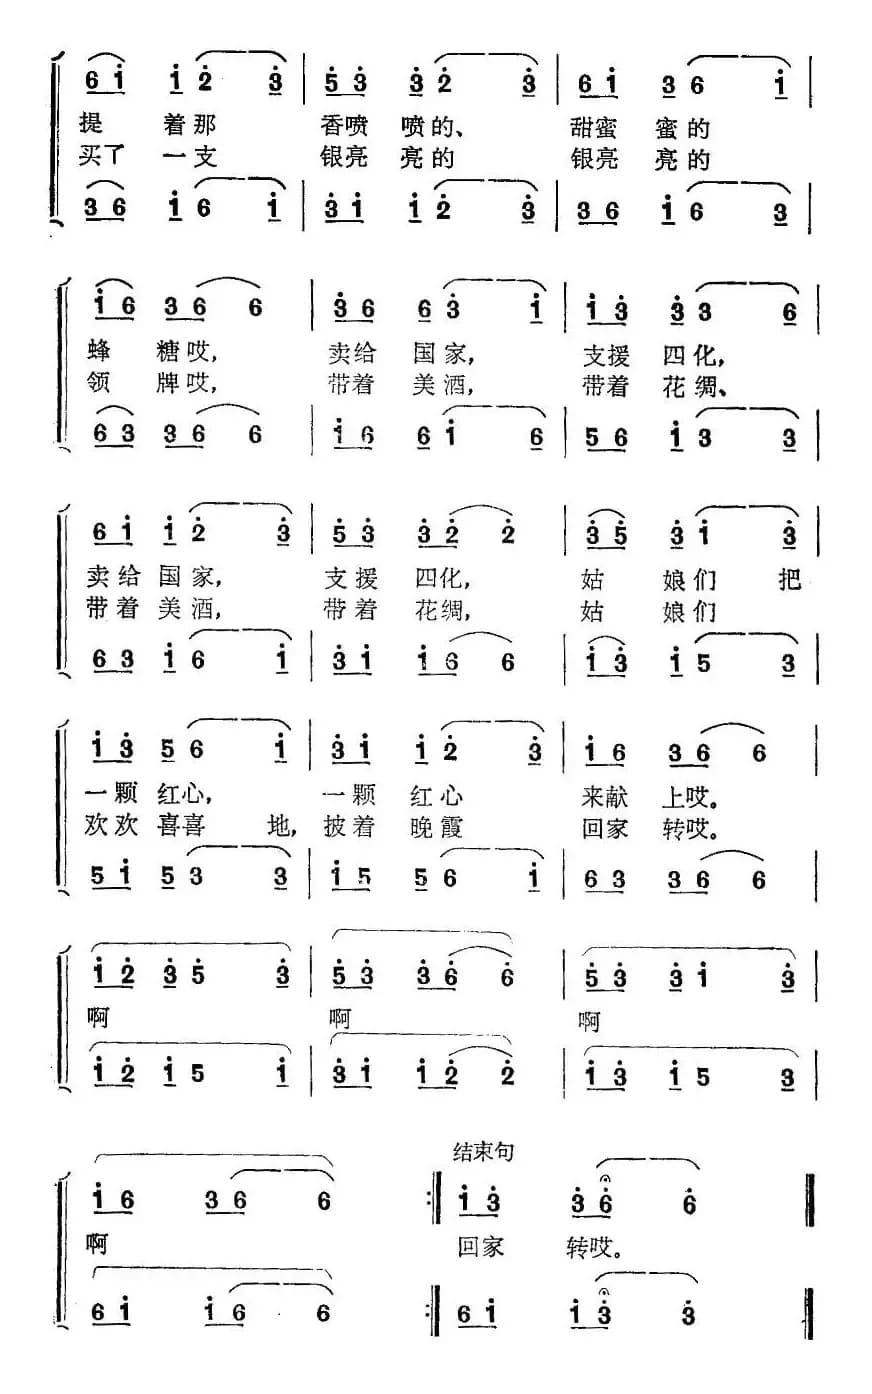 6 i i 2 3 | 5 3 3 2 3 | 6 i 3 6 i |
提 着那 香喷 喷的、 甜蜜 蜜的
买了 一支 银亮 亮的 银亮 亮的
3 6 i 6 i | 3 i i 2 3 | 3 6 i 6 3 |
i 6 3 6 6 | 3 6 6 3 i | i 3 3 3 6 |
蜂 糖哎, 卖给 国家, 支援 四化,
领 牌哎, 带着 美酒, 带着 花绸、
6 3 3 6 6 | i 6 6 i 6 | 5 6 i 3 3 |
6 i i 2 3 | 5 3 3 2 2 | 3 5 3 i 3 |
卖给 国家, 支援 四化, 姑 娘们 把
带着 美酒, 带着 花绸, 姑 娘们
6 3 i 6 i | 3 i i 6 6 | i 3 i 5 3 |
i 3 5 6 i | 3 i i 2 3 | i 6 3 6 6 |
一颗 红心, 一颗 红心 来献 上哎。
欢欢 喜喜 地, 披着 晚霞 回家 转哎。
5 i 5 3 3 | i 5 5 6 i | 6 3 3 6 6 |
i 2 3 5 3 | 5 3 3 6 6 | 5 3 3 i 3 |
啊 啊 啊
i 2 i 5 i | 3 i i 2 2 | i 3 i 5 3 |
结束句
i 6 3 6 6 :‖ i 3 3 6 6 ‖
啊 回家 转哎。
6 i i 6 6 :‖ 6 i i 3 3 ‖